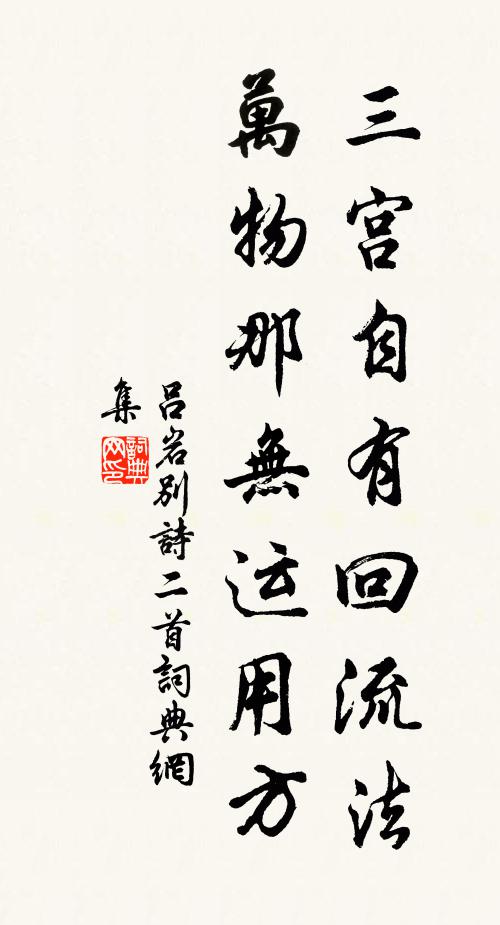 三宫自有回流法
萬物那無运用方
呂岩別詩二首詞典網
集
詞典网印